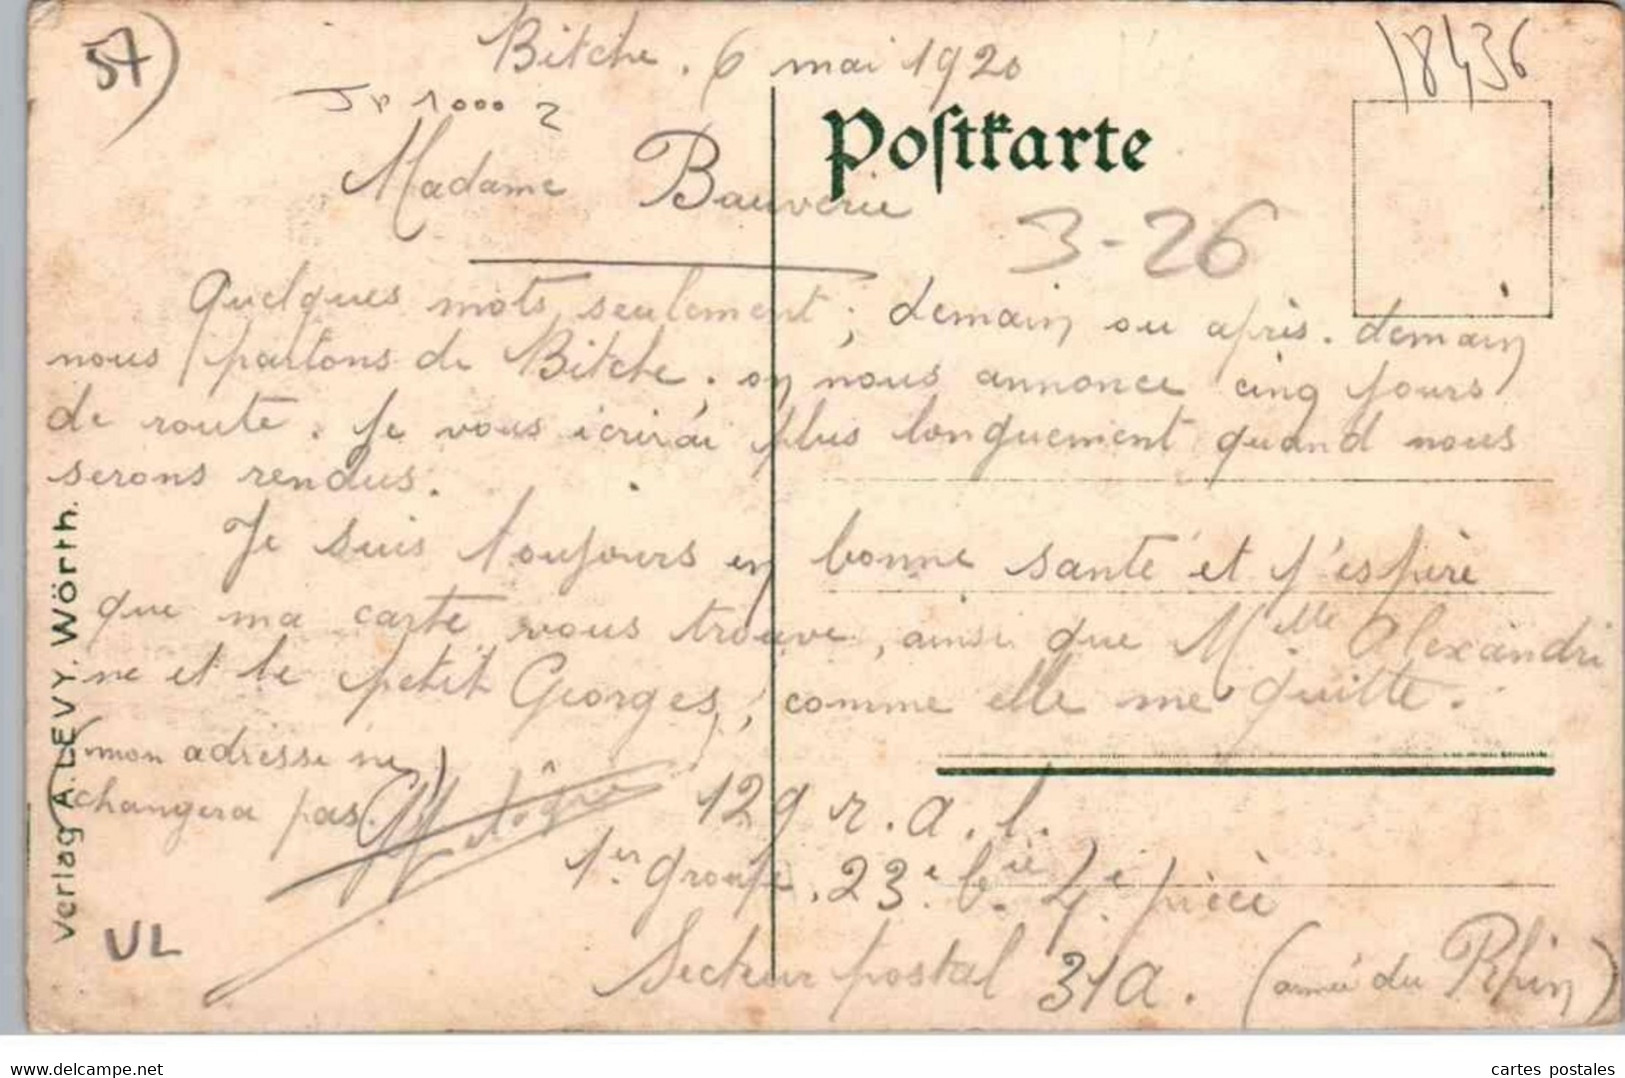 57)
Bitche. 6 mai 1920
18436
Postkarte
Madame Bauverie
3-26
Quelques mots seulement ; demain ou après-demain
nous partons de Bitche ; on nous annonce cinq jours
de route. Je vous écrirai plus longuement quand nous
serons rendus.
Je suis toujours en bonne santé et j'espère
que ma carte vous trouve, ainsi que Melle Alexandri
ne et le petit Georges, comme elle me quitte.
(mon adresse ne
changera pas)
129 r. a. l.
1er groupe. 23e bie 4e pièce
Secteur postal 31A. (armée du Rhin)
Verlag A. LEVY. Wörth.
UL
www.delcampe.net
cartes postales